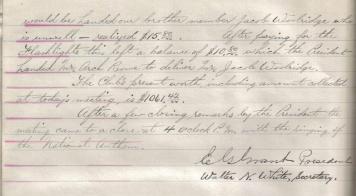 would be handed our brother member Jacob Woolridge who
is unwell — realized $15.00 After paying for the
Flashlights this left a balance of $10.80 which the President
handed Mr. Arch Rowe to deliver Mr. Jacob Woolridge.
The Club's present worth including amount collected
at today's meeting is $1061.42.
After a few closing remarks by the President the
meeting came to a close at 4 oclock P.m with the singing of
the National Anthem.
President
Walter N. White, Secretary.